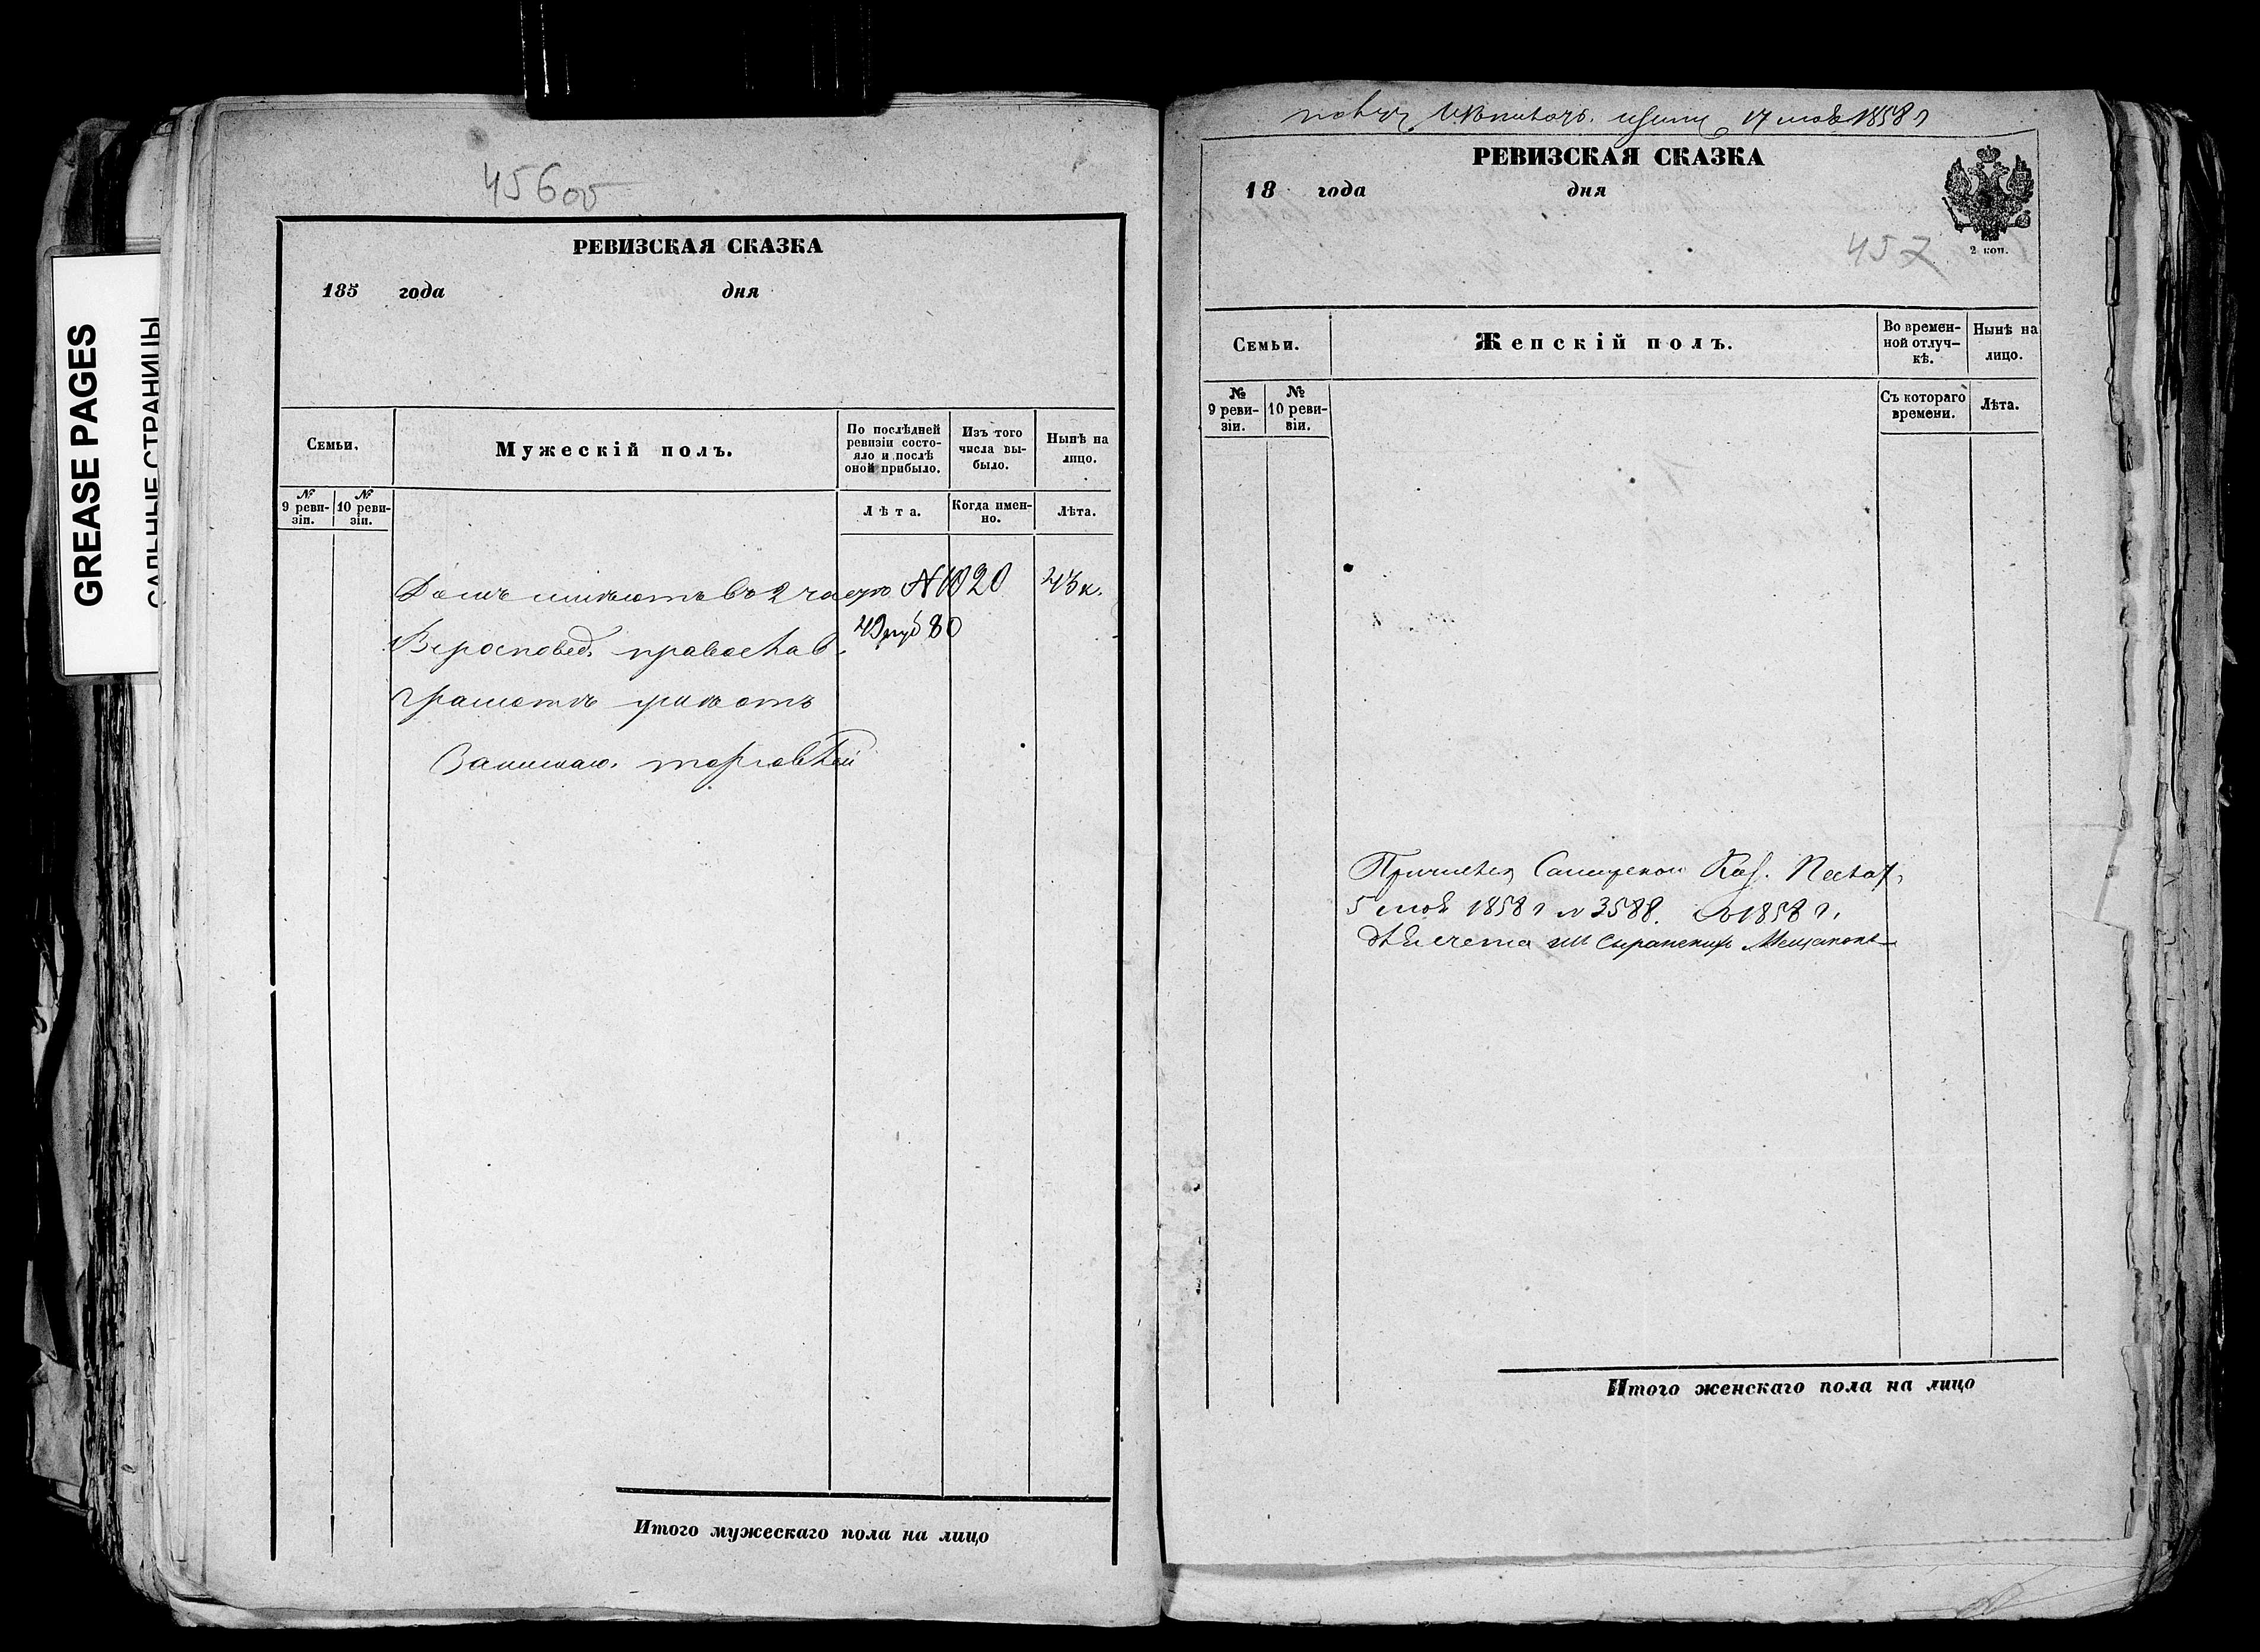 GREASE PAGES
САЛЬНЫЕ СТРАНИЦЫ
456об
РЕВИЗСКАЯ СКАЗКА
185 года дня
Семьи.
Мужескій полъ.
По послѣдней ревизіи состо-
яло и послѣ оной прибыло.
Изъ того числа вы-
было.
Нынѣ на лицо.
№ 9 реви-
зіи.
№ 10 реви-
зіи.
Лѣта.
Когда имен-
но.
Лѣта.
Домъ имѣютъ въ 2 части N 1020 43 к.
49 руб 80
Вероисповед. православ.
грамотѣ умѣютъ
Занимаю. торговлей
Итого мужескаго пола на лицо
17 1858 г
РЕВИЗСКАЯ СКАЗКА
18 года дня
457
2 коп.
Семьи.
Женскій полъ.
Во времен-
ной отлуч-
кѣ.
Нынѣ на лицо.
№ 9 реви-
зіи.
№ 10 реви-
зіи.
Съ котораго времени.
Лѣта.
Каз. Палат.
5 1858 г N 3588. 1858 г.
Мещанъ
Итого женскаго пола на лицо